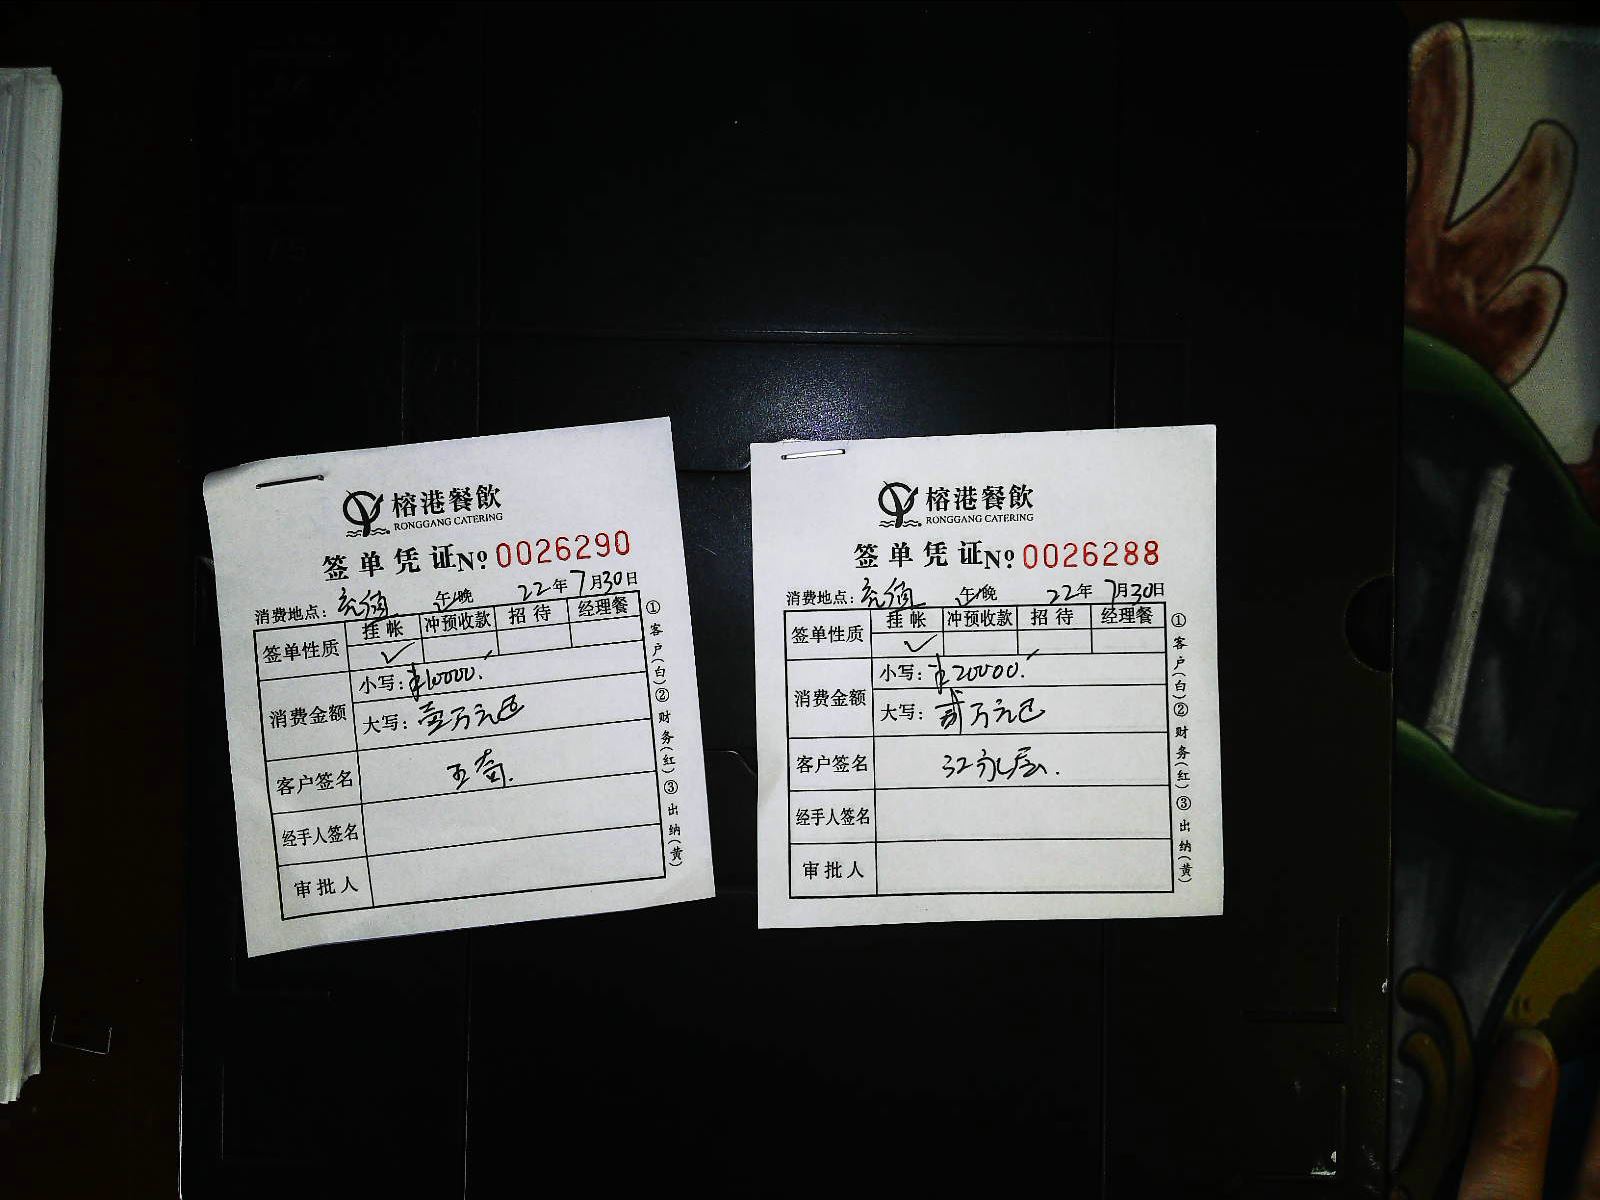 榕港餐飲
RONGGANG CATERING
签单凭证 No 0026290
消费地点：充值 午/晚 22年7月30日
签单性质 挂帐 冲预收款 招待 经理餐
✓
消费金额 小写：¥10000.
大写：壹万元正
客户签名
经手人签名
审批人
①客户(白)②财务(红)③出纳(黄)
榕港餐飲
RONGGANG CATERING
签单凭证 No 0026288
消费地点：充值 午/晚 22年7月30日
签单性质 挂帐 冲预收款 招待 经理餐
✓
消费金额 小写：¥20000.
大写：贰万元正
客户签名
经手人签名
审批人
①客户(白)②财务(红)③出纳(黄)